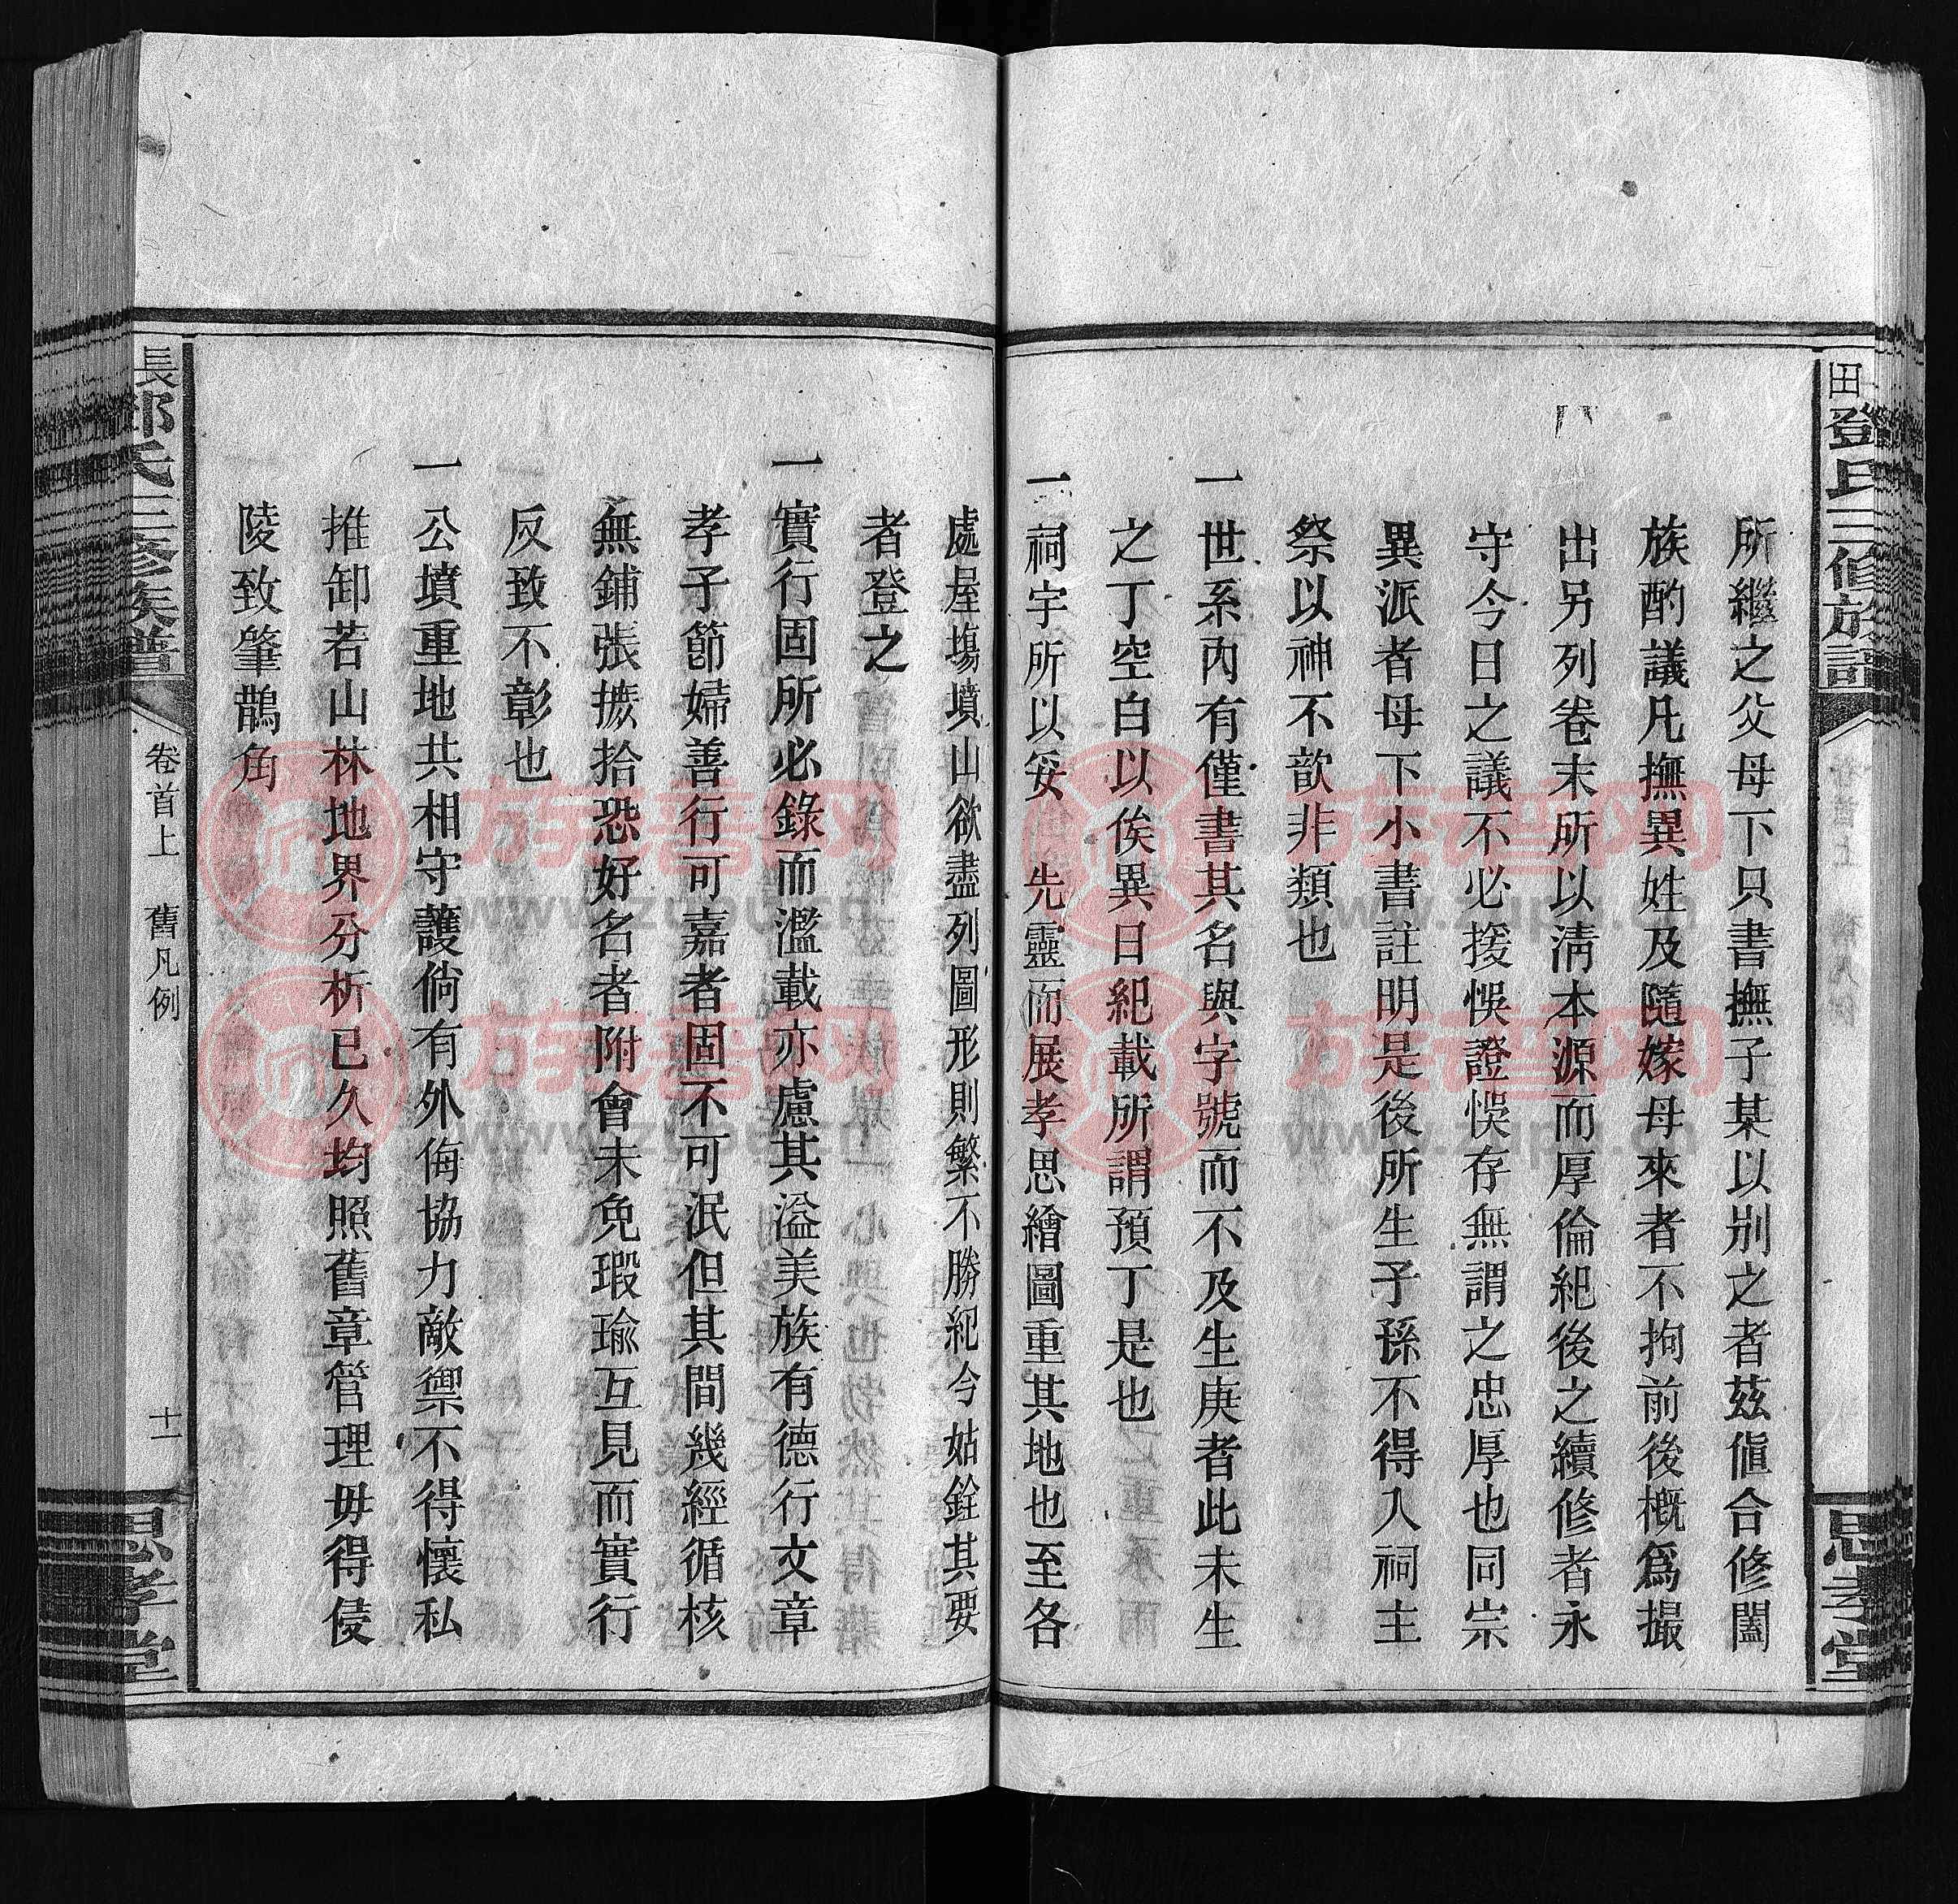 田鄧氏三修族譜
思孝堂
所繼之父母下只書撫子某以別之者茲值合修闔
族酌議凡撫異姓及隨嫁母來者不拘前後概爲撮
出另列卷末所以清本源而厚倫紀後之續修者永
守今日之議不必援悞證悞存無謂之忠厚也同宗
異派者母下小書註明是後所生子孫不得入祠主
祭以神不歆非類也
一世系內有僅書其名與字號而不及生庚者此未生
之丁空白以俟異日紀載所謂預丁是也
一祠宇所以妥 先靈而展孝思繪圖重其地也至各
處屋塲墳山欲盡列圖形則繁不勝紀今姑銓其要
者登之
一實行固所必錄而濫載亦慮其溢美族有德行文章
孝子節婦善行可嘉者固不可泯但其間幾經循核
無鋪張摭拾恐好名者附會未免瑕瑜互見而實行
反致不彰也
一公墳重地共相守護倘有外侮協力敵禦不得懷私
推卸若山林地界分析已久均照舊章管理毋得侵
陵致肇鵲角
長鄧氏三修族譜
卷首上 舊凡例
十一
思孝堂
族谱网
www.zupu.cn
族谱网
www.zupu.cn
族谱网
www.zupu.cn
族谱网
www.zupu.cn